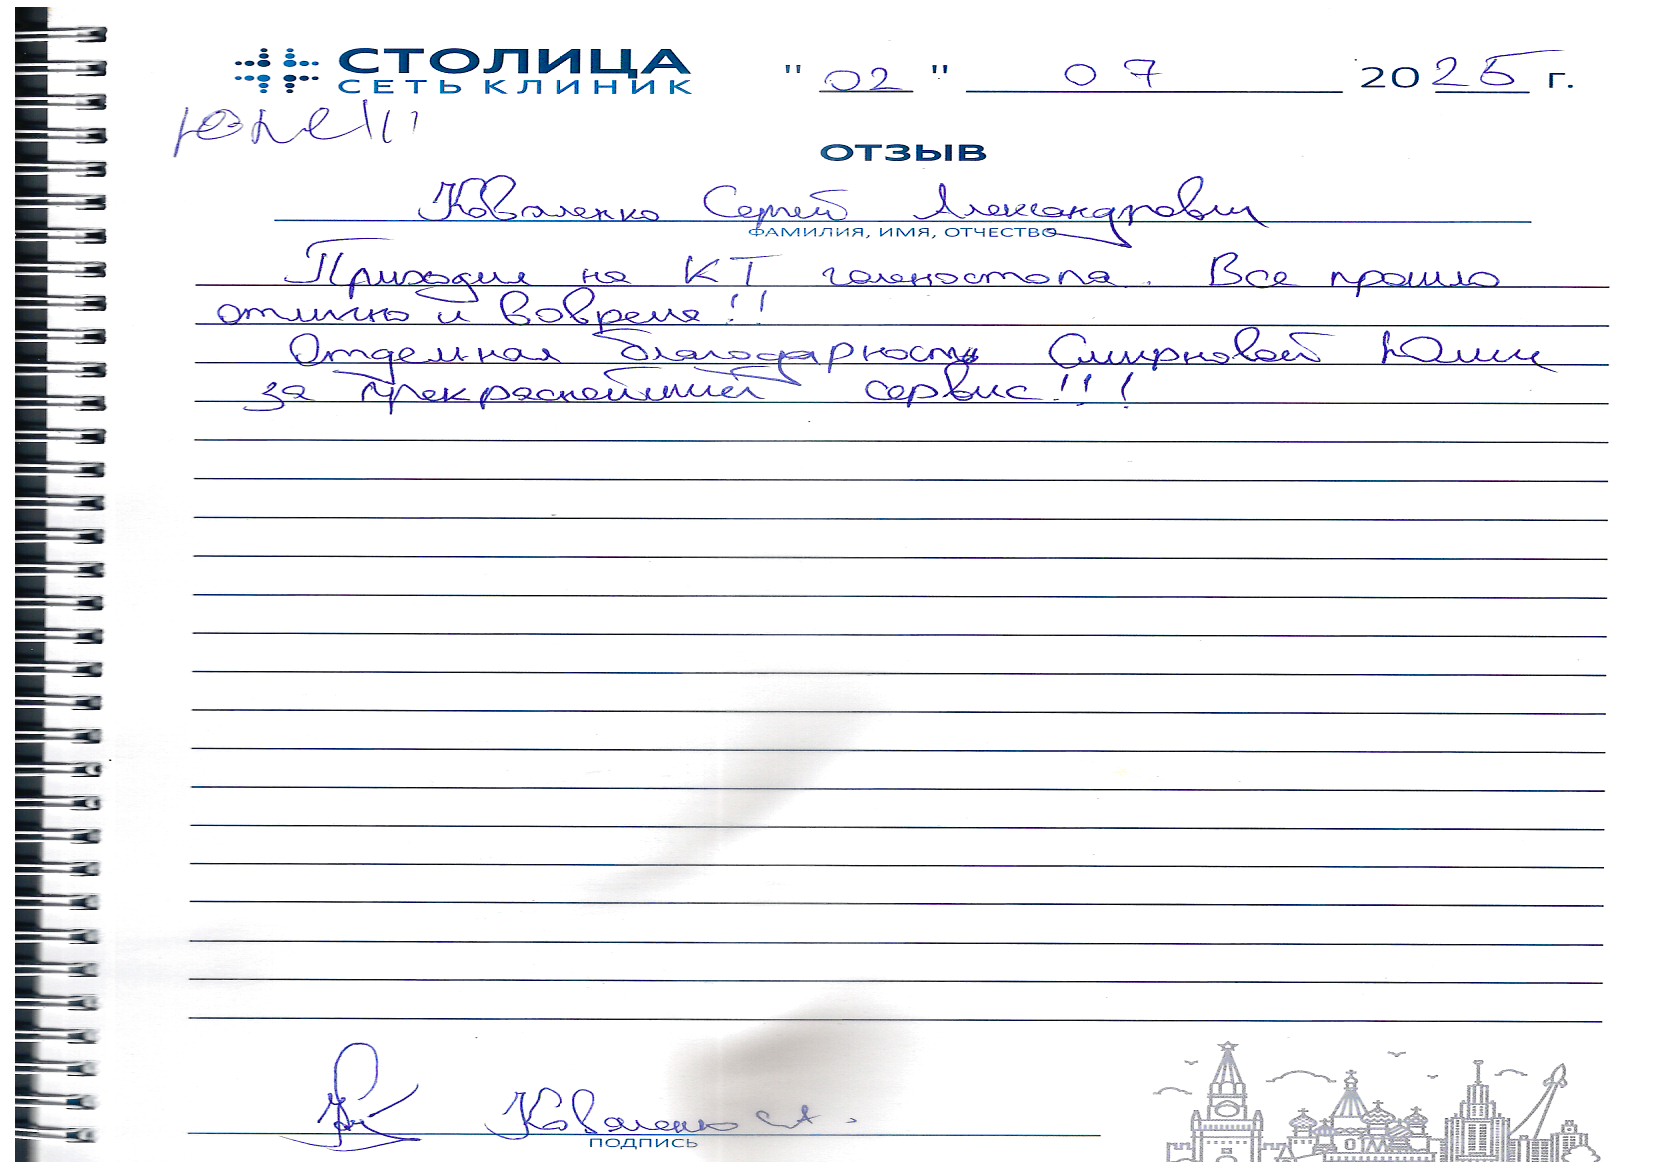 СТОЛИЦА
СЕТЬ КЛИНИК
" 02 " 07 2025 г.
ОТЗЫВ
Коваленко Сергей Александрович
ФАМИЛИЯ, ИМЯ, ОТЧЕСТВО
Приходил на КТ голеностопа. Все прошло
отлично и вовремя!!
Отдельная благодарность Смирновой Юлии
за прекраснейший сервис!!!
Коваленко С.А.
ПОДПИСЬ